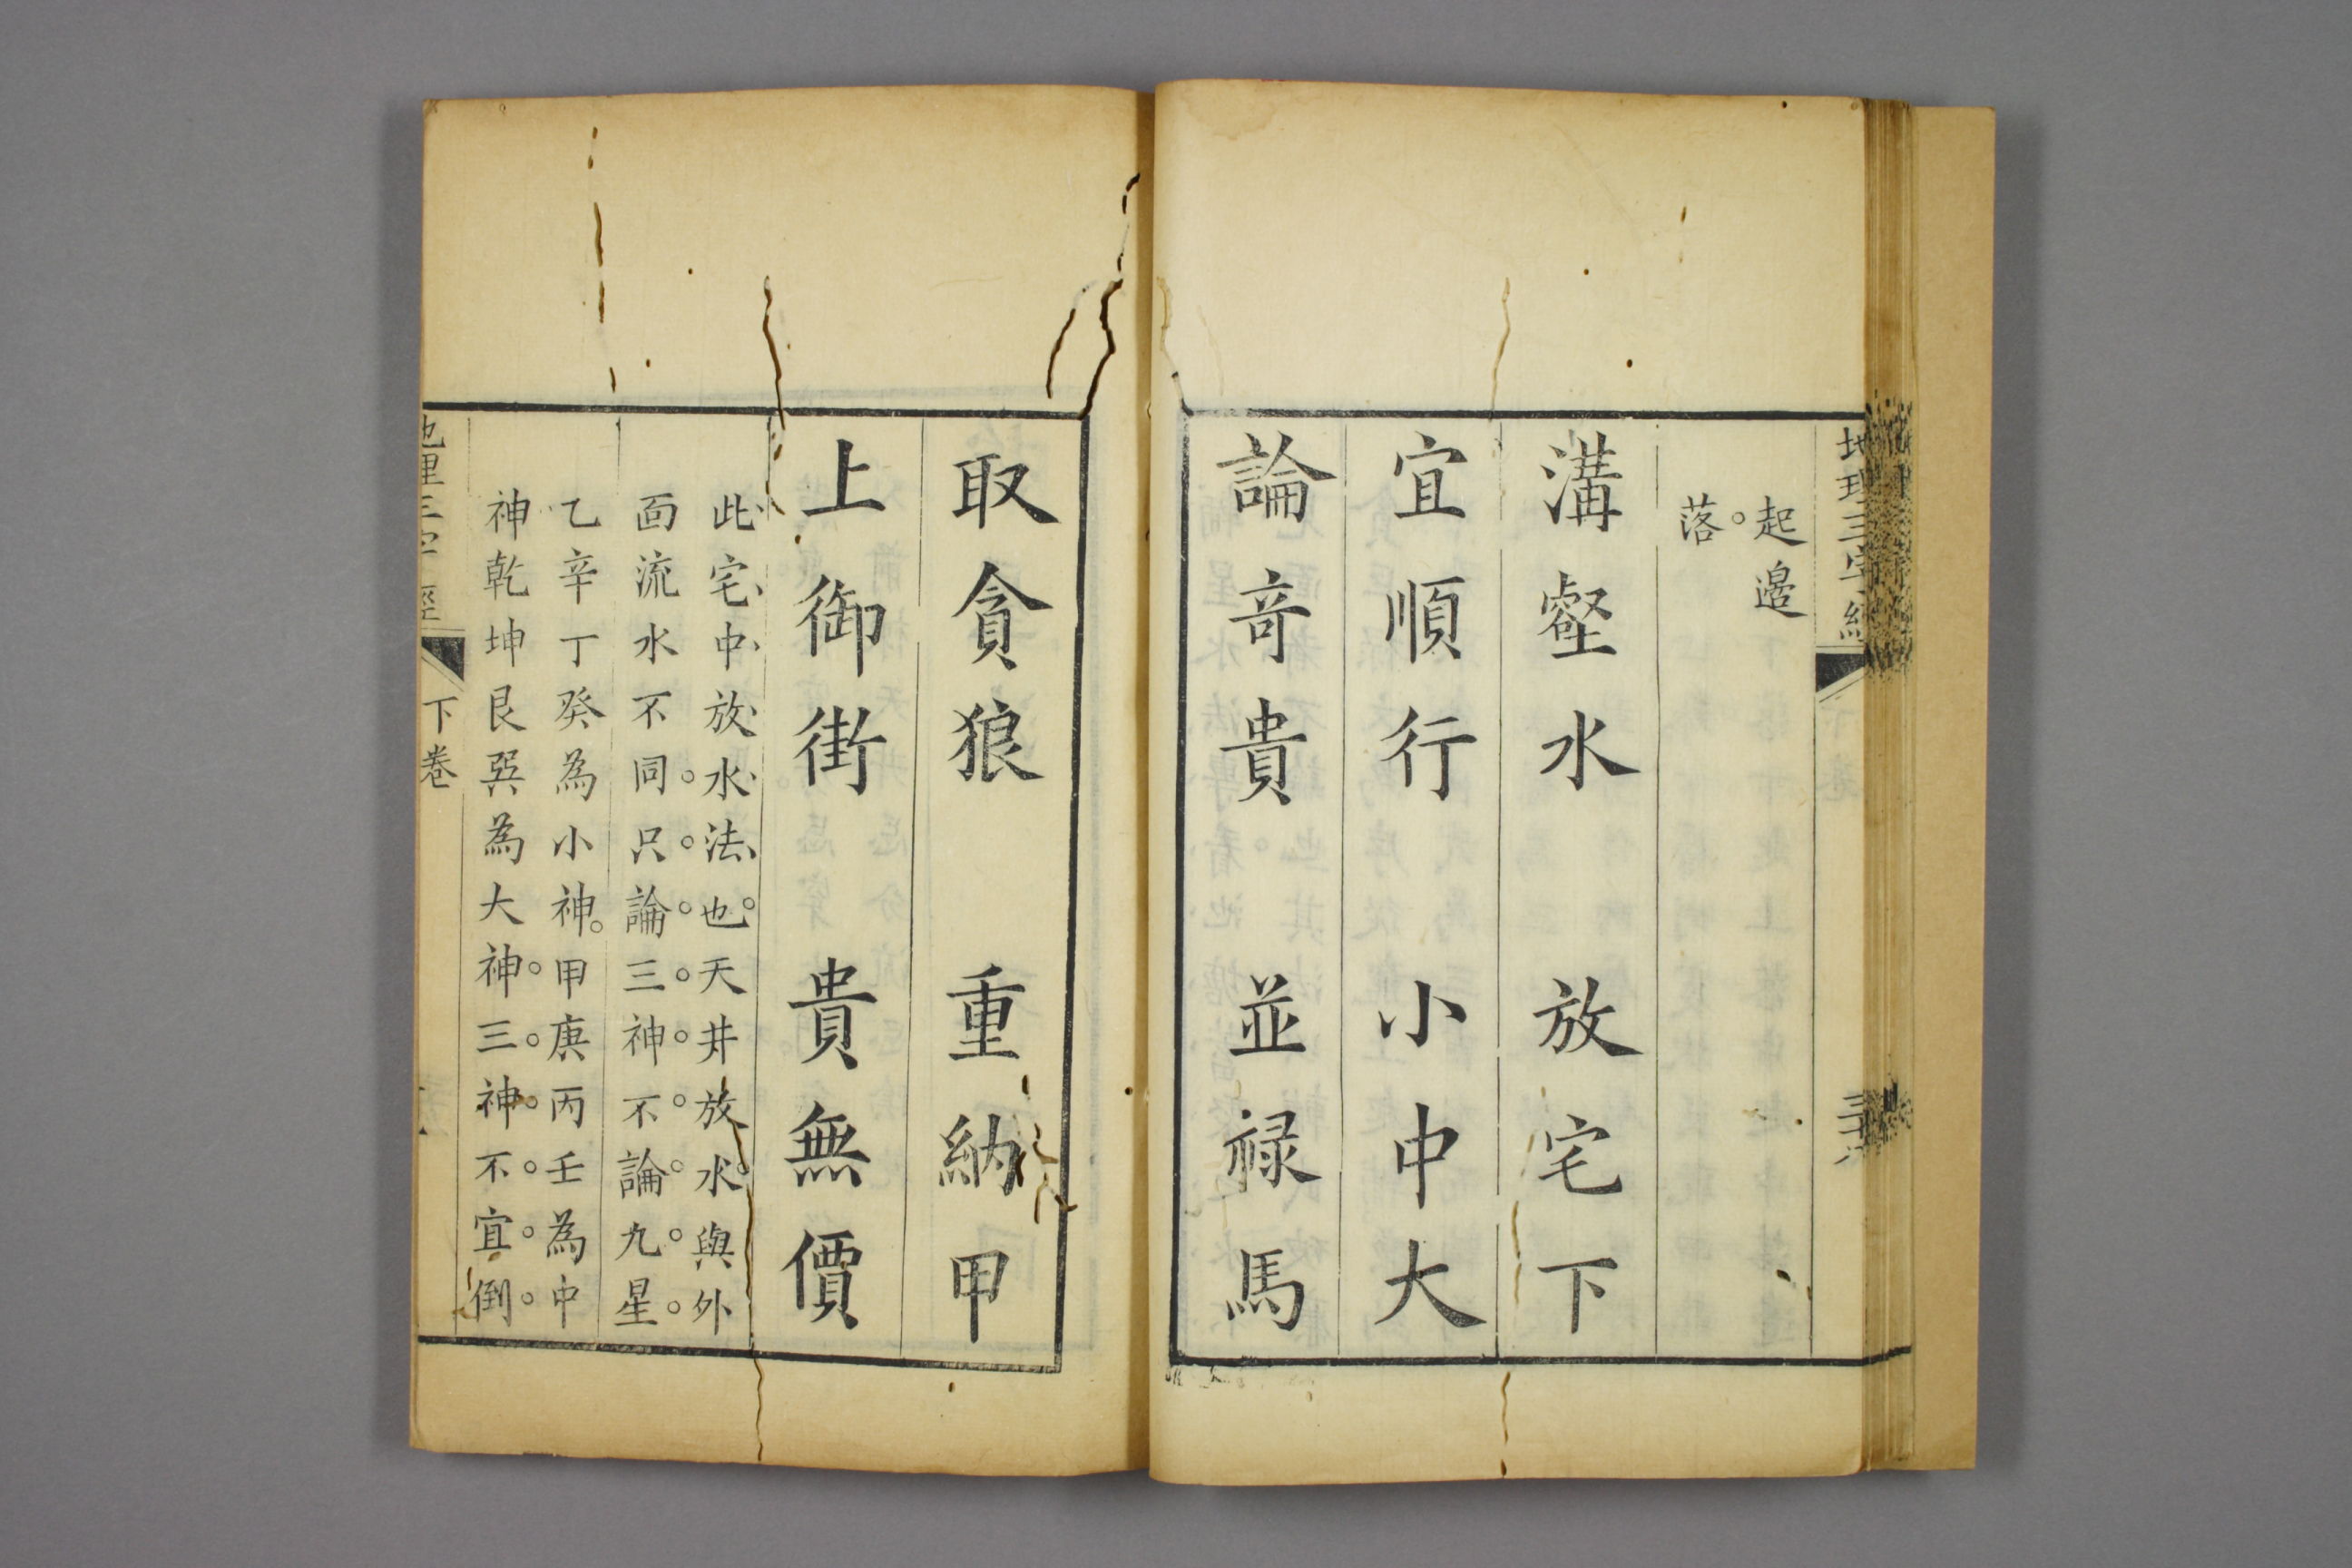 地理三字經
起邉
落。
溝壑水　放宅下
宜順行　小中大
論竒貴　並禄馬
取貪狼　重納甲
上御街　貴無價
此宅中放水法也。天井放水。與外
面流水不同。只。論。三。神。不。論。九。星。
乙辛丁癸為小神。甲庚丙壬為中
神乾坤艮巽為大神。三。神。不。宜。倒。
下卷